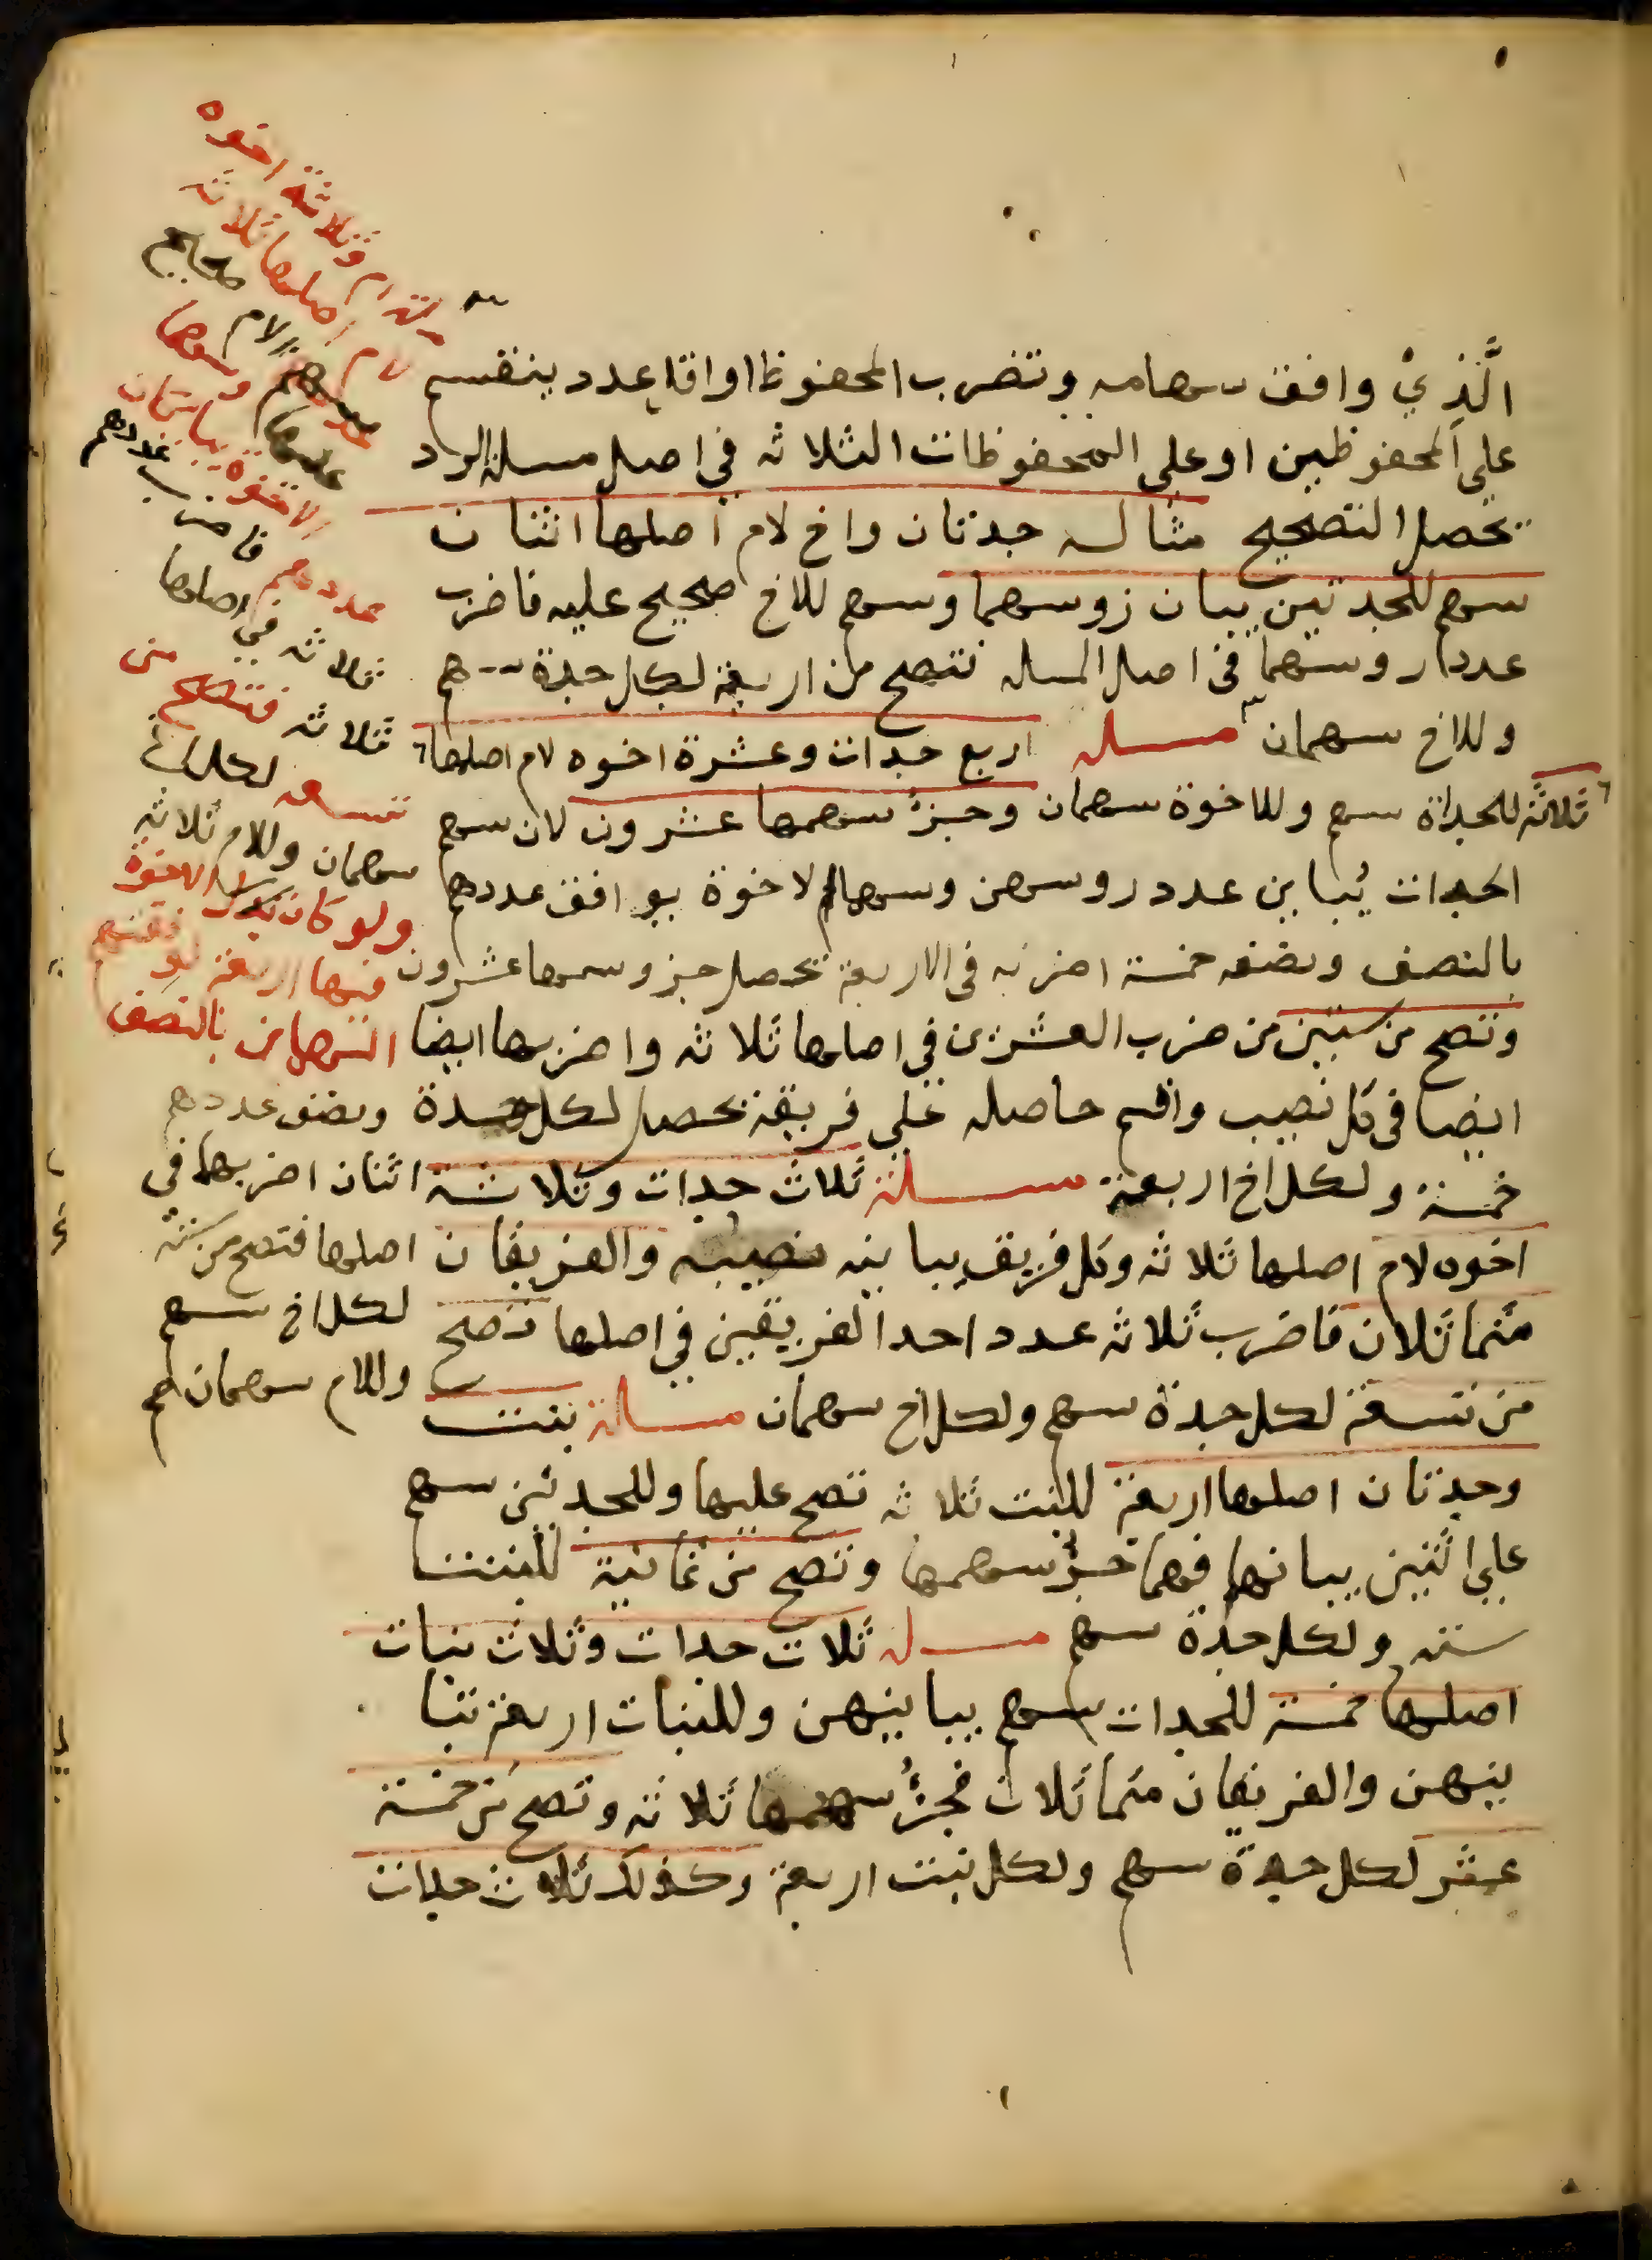 الَّذِيْ وافق سهامه وتضرب المحفوظ او اقل عدد ينقسم
على المحفوظين او على المحفوظات الثلاثه في اصل مسلة الرد
يحصل التصحيح مثاله جدتان واخ لام اصلها اثنان
سهم للجدتين يباين روسهما وسهم للاخ صحيح عليه فاضرب
عدد روسهما في اصل المسله تصح من اربعة لكل جدة سهم
وللاخ سهمان مسله اربع جدات وعشرة اخوه لام اصلها
ثلاثة للجداة سهم وللاخوة سهمان وجزؤ سهمها عشرون لان سهم
الجدات يُباين عدد روسهن وسهام الاخوة يوافق عددهم
بالنصف ونصفه خمسة اضربه في الاربعة تحصل جزو سهمها عشرون
وتصح من ستين من ضرب العشرين في اصلها ثلاثه واضربها ايضا
ايضا في كل نصيب واقسم حاصله علي فريقه يحصل لكل جدة
خمسة ولكل اخ اربعة مسلة ثلاث جدات وثلاثة
اخوه لام اصلها ثلاثه وكل فريق يباينه نصيبه والفريقان
متماثلان فاضرب ثلاثه عدد احد الفريقين في اصلها تصح
من تسعة لكل جدة سهم ولكل اخ سهمان مسلة بنت
وجدتان اصلها اربعة للبنت ثلاثه تصح عليها وللجدتين سهم
على اثنين يباينهما فهما جزؤ سهمها وتصح من ثمانية للبنت
سته ولكل جدة سهم مسله ثلاث جدات وثلاث بنات
اصلها خمسة للجدات سهم يباينهن وللبنات اربعة تبا
ينهن والفريقان متماثلان فجزؤ سهمها ثلاثه وتصح من خمسة
عشر لكل جدة سهم ولكل بنت اربعة وكذلك ثلاث جدات
ام وثلاثة اخوه
لام اصلها ثلاثه
للام صحيح
عليها وسهما
الاخوة يباينان
عددهم فاضرب عددهم
ثلاثه في اصلها
ثلاثه فتصح من
تسعه لكل اخ
سهمان وللام ثلاثه
ولو كان بدل الاخوة
فيها اربعة
السهمان بالنصف
ونصف عددهم
اثنان اضربهما في
اصلها فتصح من سته
لكل اخ سهم
وللام سهمان